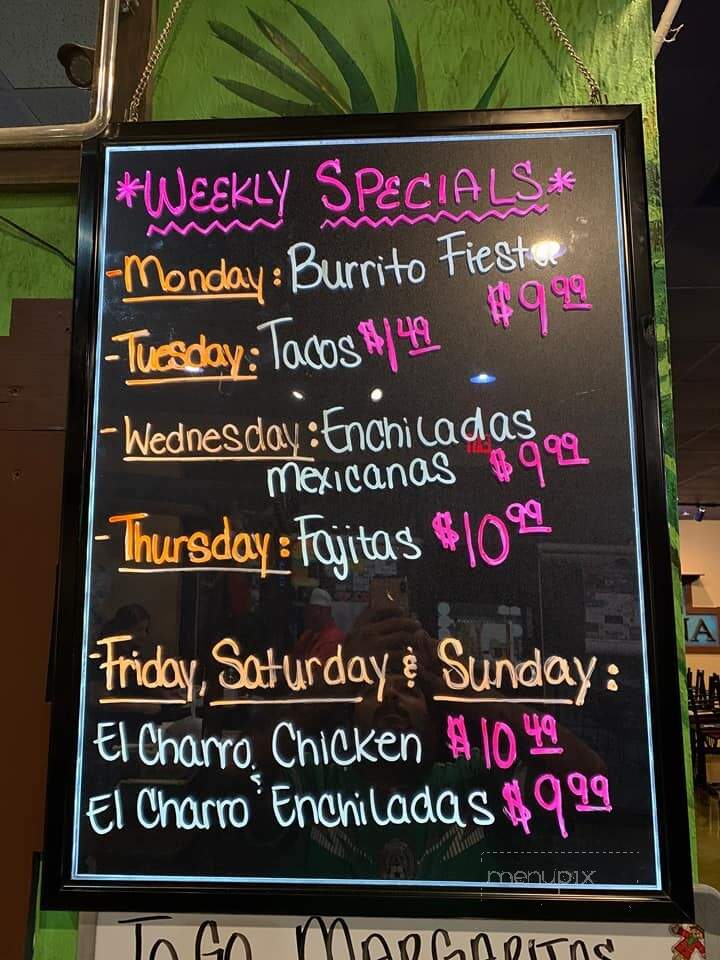 *WEEKLY SPECIALS*
-Monday: Burrito Fiesta
$9.99
-Tuesday: Tacos $1.49
-Wednesday: Enchiladas
Mexicanas $9.99
-Thursday: Fajitas $10.99
-Friday, Saturday & Sunday:
El Charro Chicken $10.49
&
El Charro Enchiladas $9.99
menupix
TO GO MARGARITAS